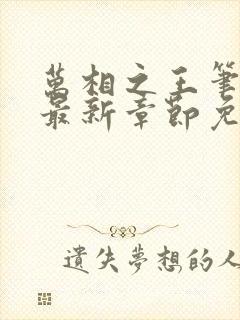 萬相之王筆
最新章節免
遺失夢想的人